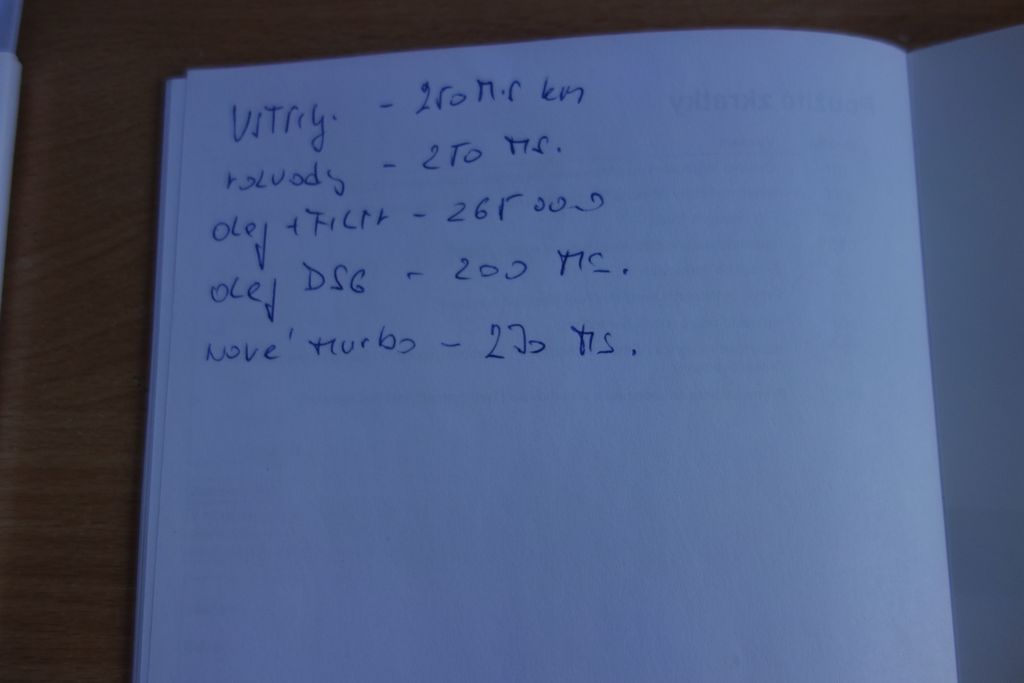 vstřiky. - 250 tis km
rozvody - 250 tis.
olej + Filtr - 265 000
olej DSG - 200 tis.
nové turbo - 270 tis.
Použité zkratky